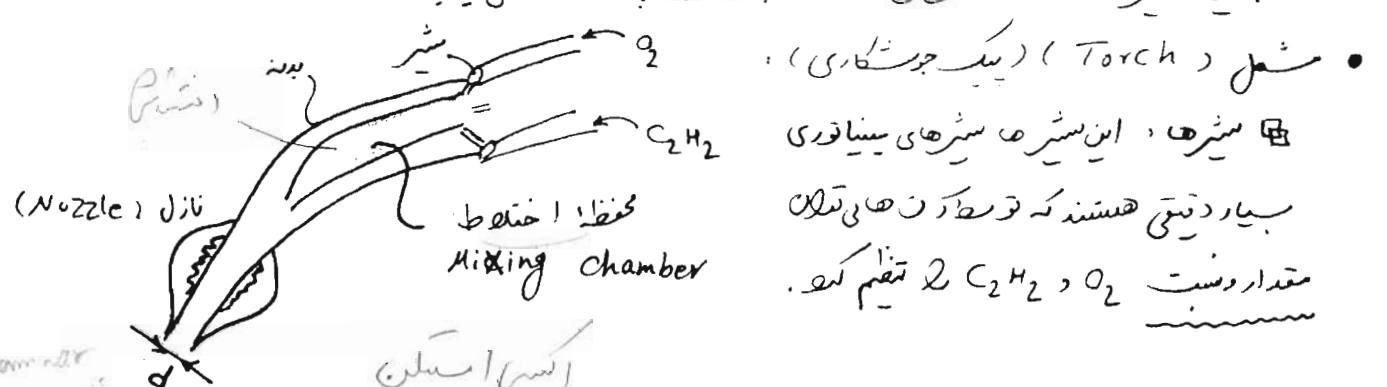 • مشعل (Torch) (پیک جوشکاری):
شیرها: این شیرها شیرهای مینیاتوری
بسیار دقیقی هستند که توسط آن های توان
مقدار و نسبت O2 و C2H2 را تنظیم کرد.
شیر
O2
بدنه
C2H2
نازل (Nozzle)
محفظه اختلاط
Mixing chamber
d
اکسی استیلن